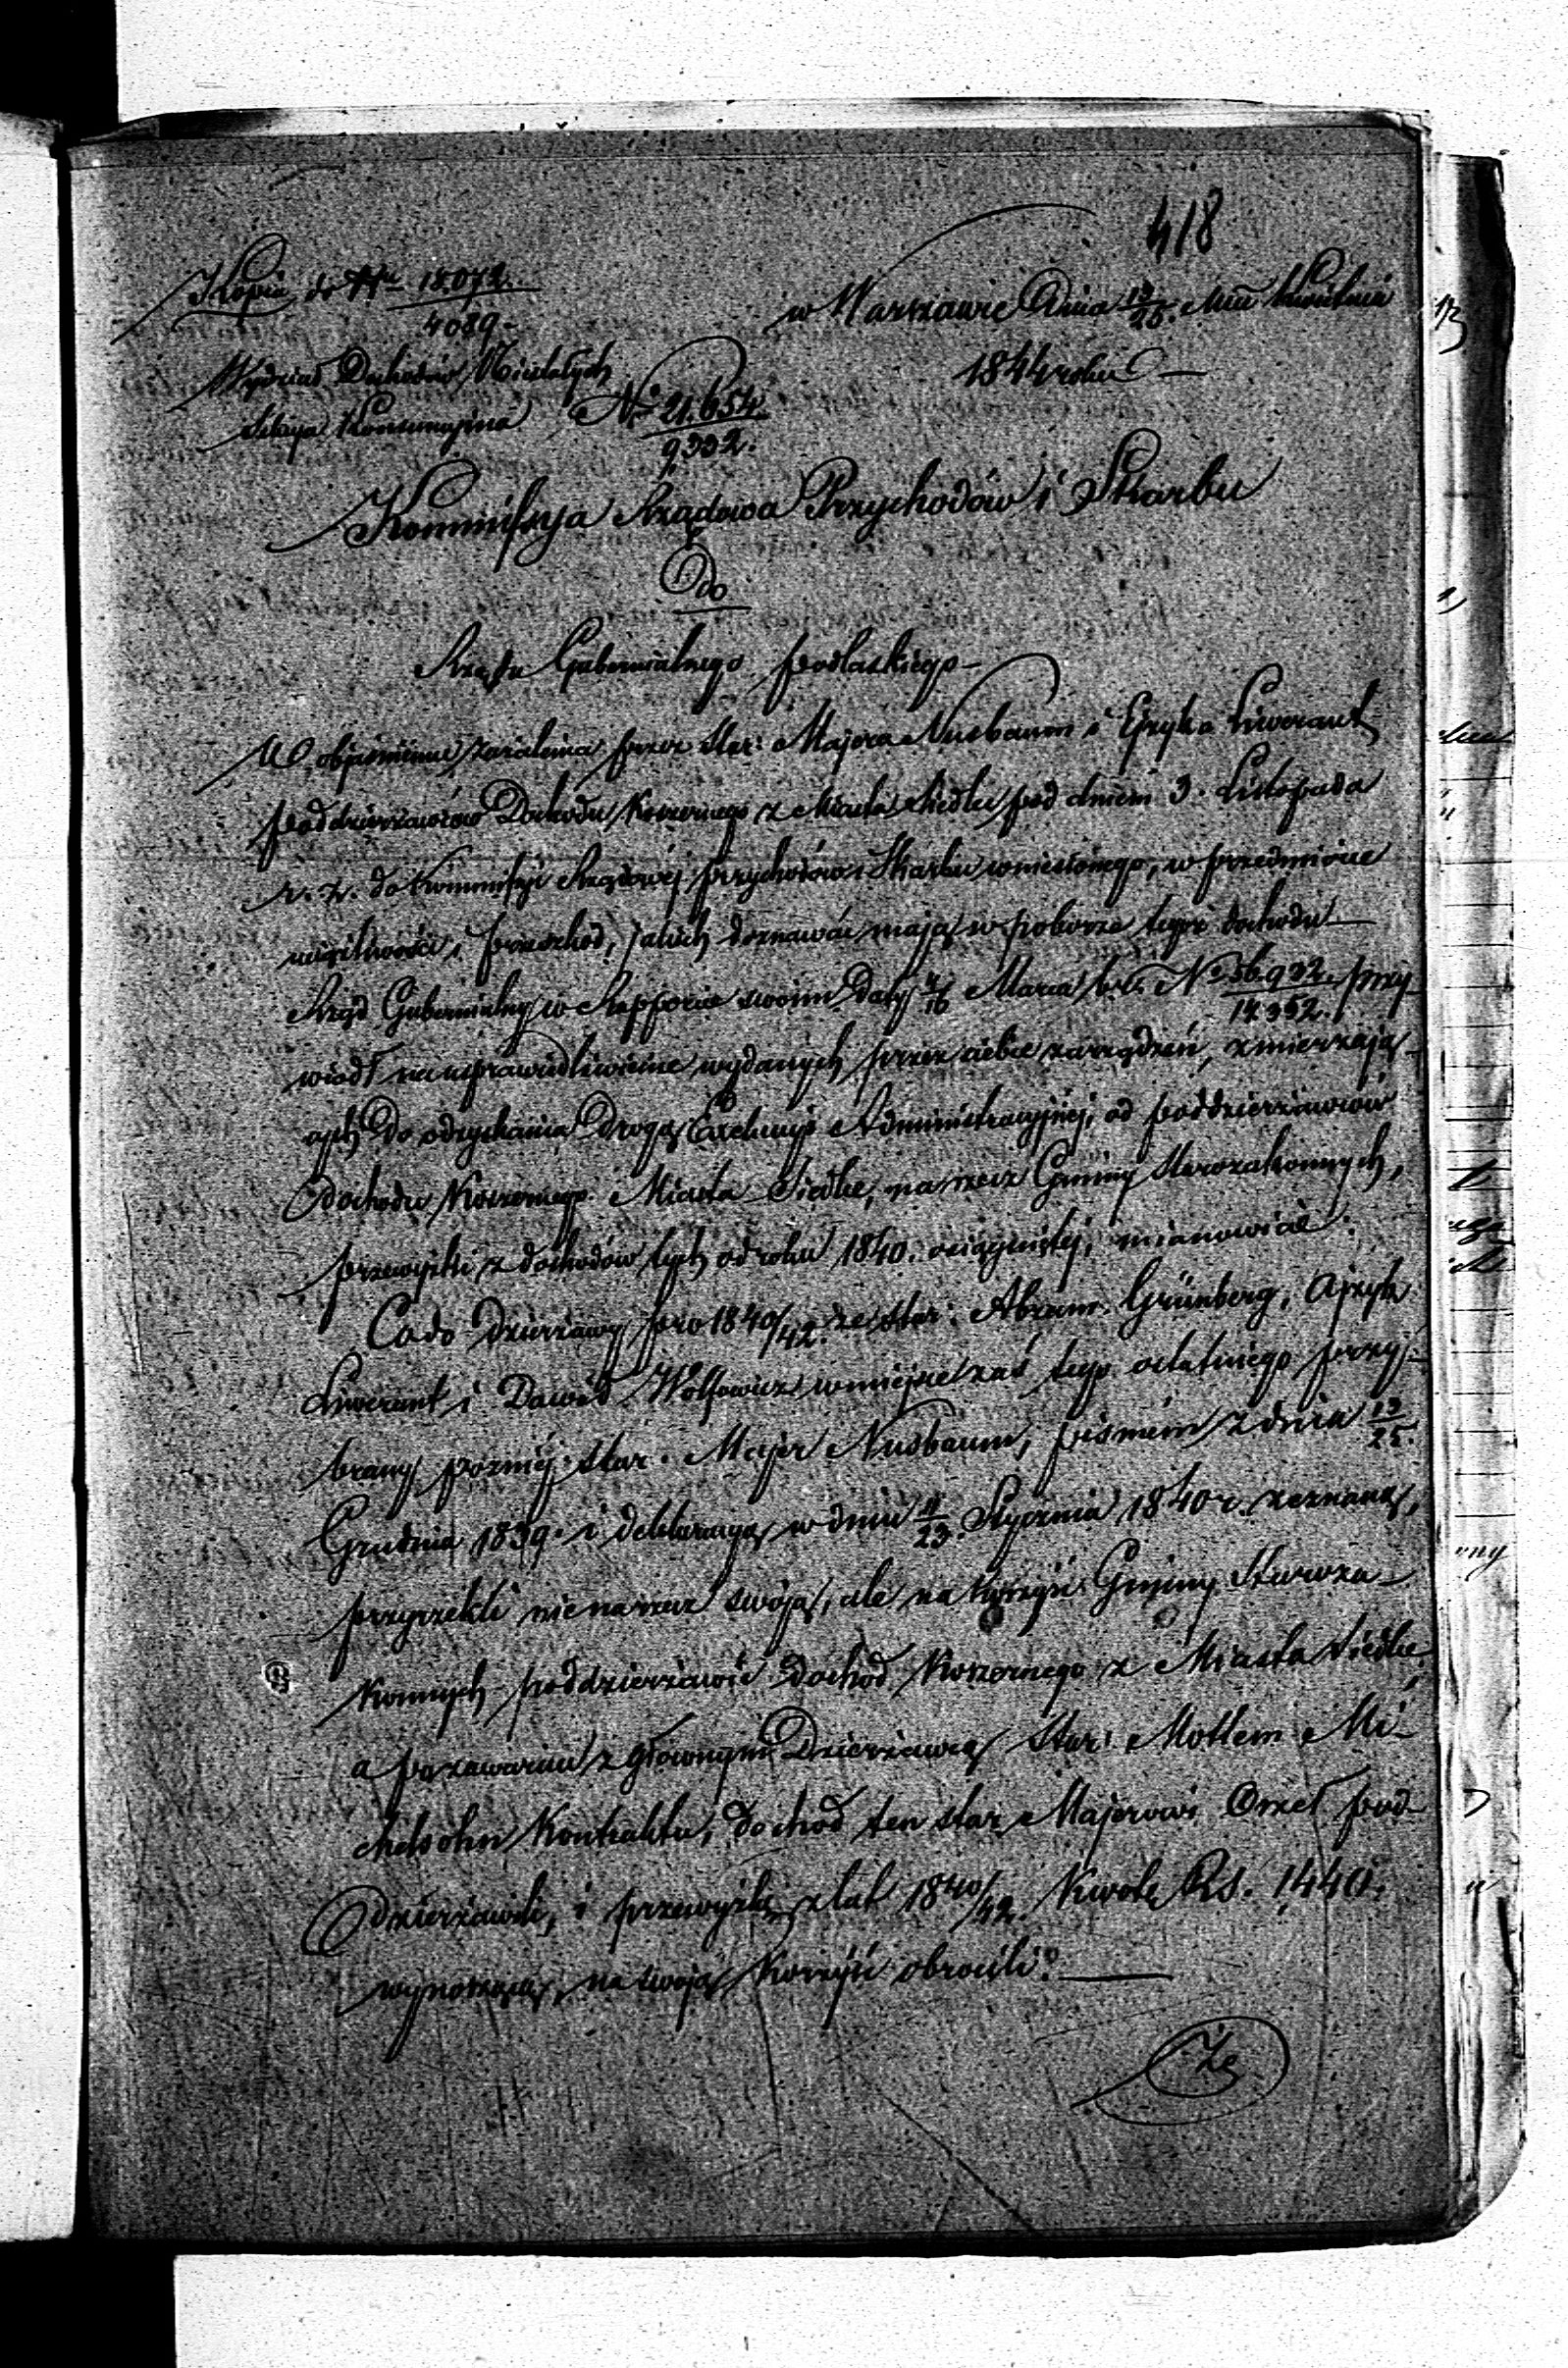 418
Kopia do Nru 18.072.
4089
w Warszawie Dnia 13/25. Mca Kwietnia
1844 roku
Wydział Dochodów Niestałych
Sekcya Konsumcyjna № 21.654.
9332.
Kommissya Rządowa Przychodów i Skarbu
Do
Rządu Gubernialnego Podlaskiego
W objaśnieniu zażalenia przez Star: Majera Nusbaum i Ejzyka Liweranta
poddzierżawców Dochodu Koszernego z Miasta Siedlec pod dniem 3. Listopada
r. z. do Kommissyi Rządowej Przychodów i Skarbu wniesionego, w przedmiocie
uciążliwości i przeszkód, jakich doznawać mają w poborze tegoż dochodu
Rząd Gubernialny w Rapporcie swoim Daty 4/16 Marca b. r. № 36.992. przy-
14.352.
wiódł na usprawiedliwienie wydanych przez siebie zarządzeń, zmierzają-
cych do odzyskania drogą Exekucyi Administracyjnej, od poddzierżawców
Dochodu Koszernego Miasta Siedlec, na rzecz Gminy Starozakonnych,
przewyżki z dochodów tych od roku 1840. osiągniętej, mianowicie:
Co do Dzierżawy pro 1840/42. że star: Abram Grünberg, Ajzyk
Liwerant i Dawid Wolfowicz w miejsce zaś tego ostatniego przy-
brany później star. Majer Nusbaum, pismem z dnia 13/25.
Grudnia 1839. i deklaracyą w dniu 11/23. Stycznia 1840 r. zeznaną,
przyrzekli nie na rzecz swoją, ale na korzyść Gminy Staroza-
konnych poddzierżawić dochód Koszernego z Miasta Siedlec
a po zawarciu z głównym Dzierżawcą Star: Motlem Mi-
chelsohn Kontraktu, dochód ten star. Majerowi Orzeł pod-
dzierżawili, i przewyżkę z lat 1840/42. Kwotę Rs. 1440.
wynoszącą, na swoją Korzyść obrócili.
Że